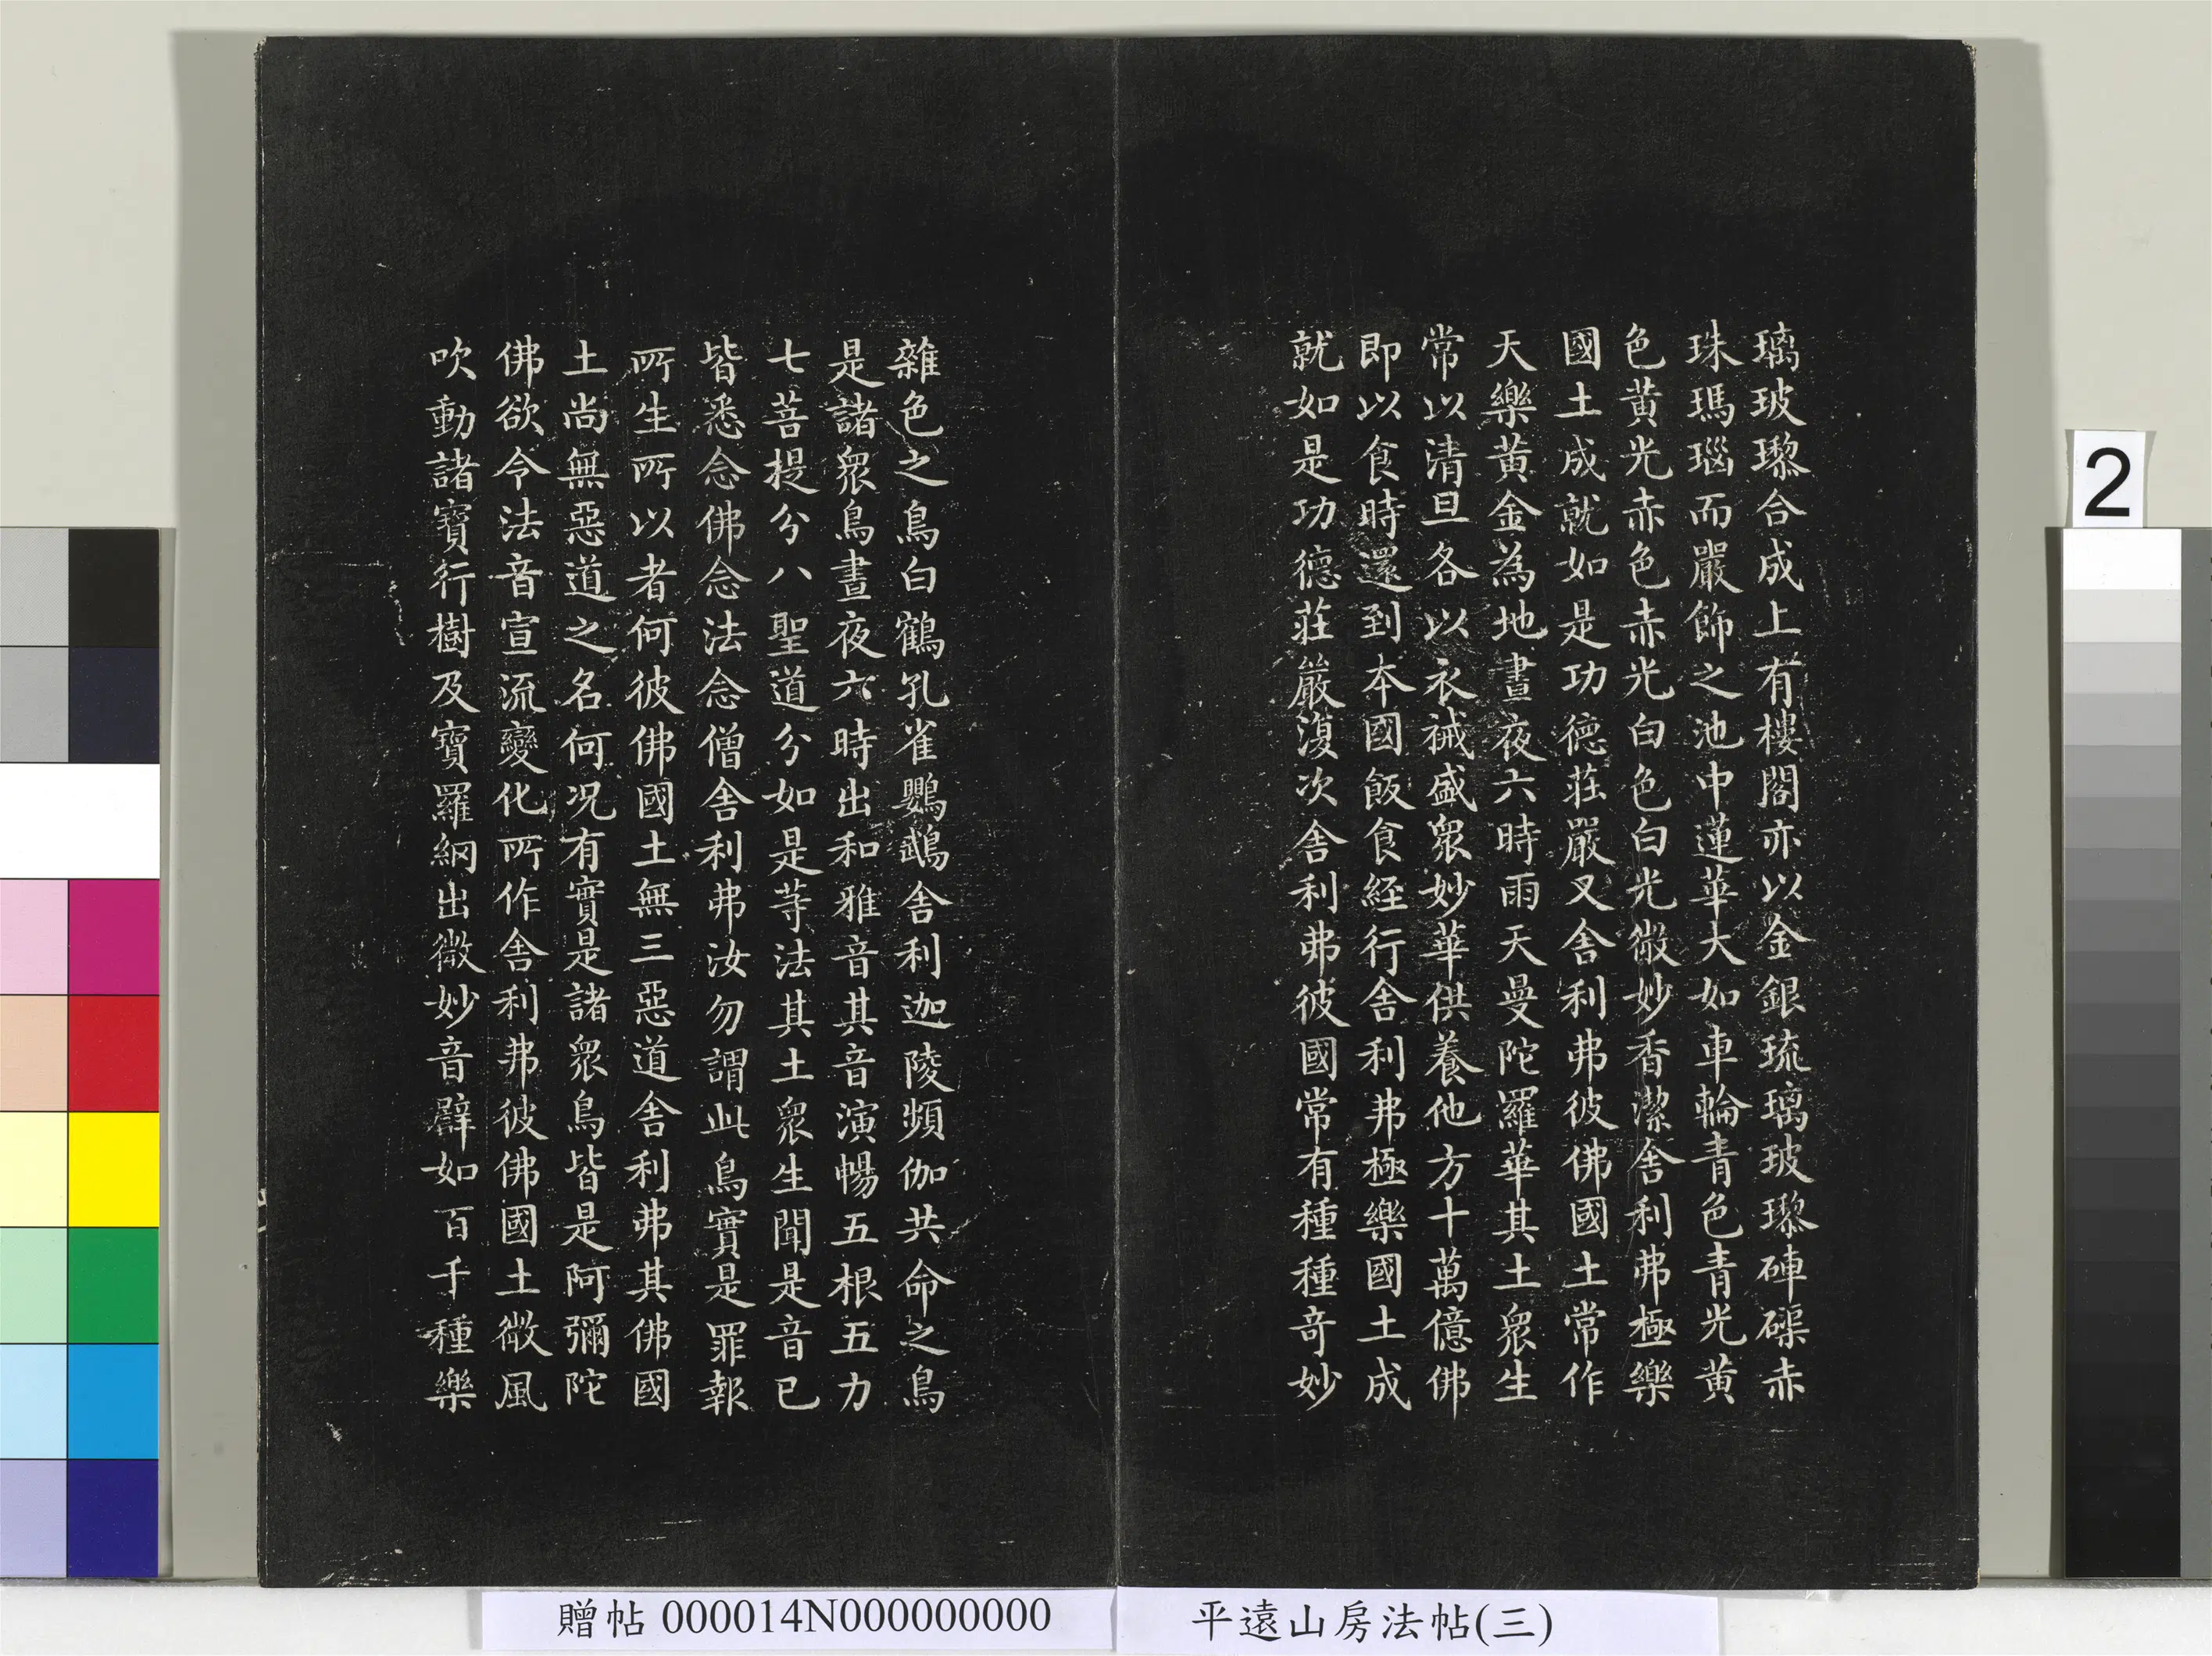 璃玻瓈合成上有樓閣亦以金銀琉璃玻瓈硨磲赤
珠瑪瑙而嚴飾之池中蓮華大如車輪青色青光黃
色黃光赤色赤光白色白光微妙香潔舍利弗極樂
國土成就如是功德莊嚴又舍利弗彼佛國土常作
天樂黃金為地晝夜六時雨天曼陀羅華其土眾生
常以清旦各以衣祴盛眾妙華供養他方十萬億佛
即以食時還到本國飯食經行舍利弗極樂國土成
就如是功德莊嚴復次舍利弗彼國常有種種奇妙
雜色之鳥白鶴孔雀鸚鵡舍利迦陵頻伽共命之鳥
是諸眾鳥晝夜六時出和雅音其音演暢五根五力
七菩提分八聖道分如是等法其土眾生聞是音已
皆悉念佛念法念僧舍利弗汝勿謂此鳥實是罪報
所生所以者何彼佛國土無三惡道舍利弗其佛國
土尚無惡道之名何況有實是諸眾鳥皆是阿彌陀
佛欲令法音宣流變化所作舍利弗彼佛國土微風
吹動諸寶行樹及寶羅網出微妙音譬如百千種樂
2
贈帖 000014N000000000
平遠山房法帖(三)